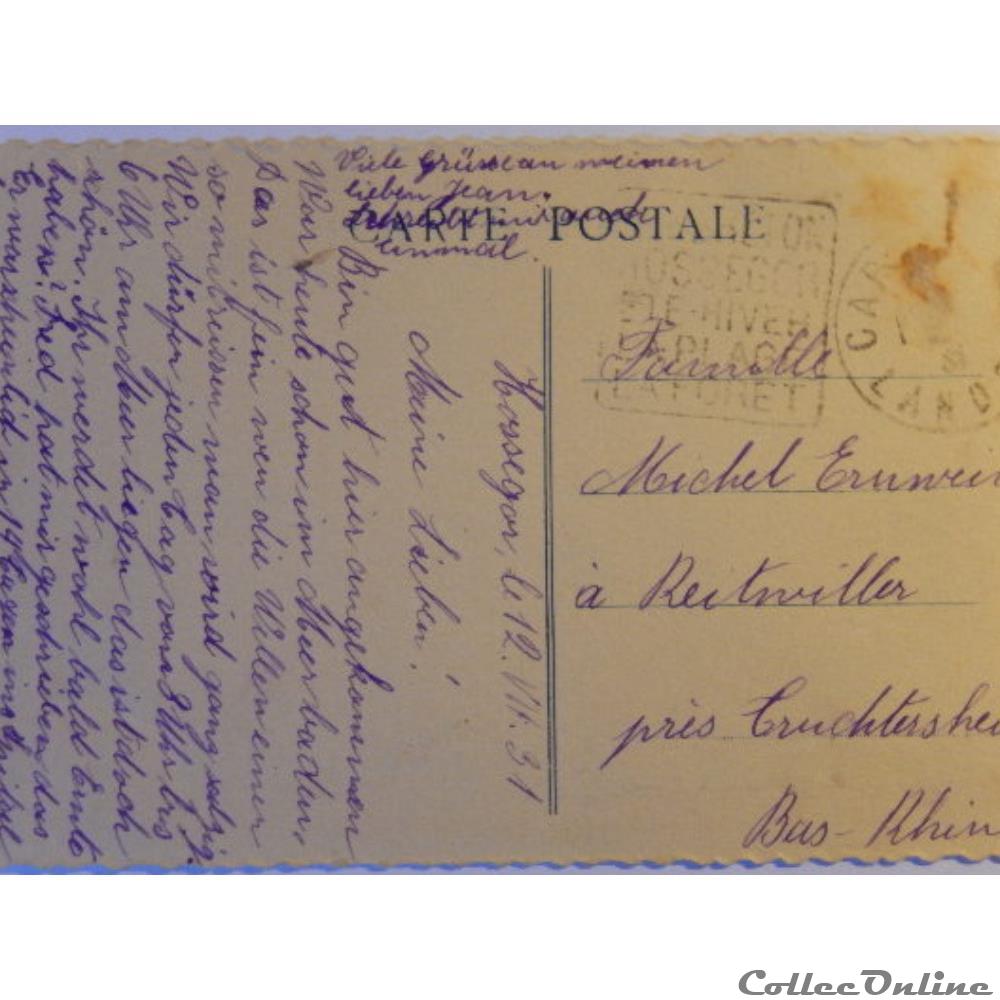 Viele Grüsse an meinen
lieben Jean.
einmal.
CARTE POSTALE
Hossegor, le 12. VII. 31
Meine Lieben!
Bin gut hier angekommen
War heute schon im Meer baden,
Das ist fein wen die Wellen einen
so mitreissen man wird ganz salzig.
Wir dürfen jeden Tag von 2 Uhr bis
6 Uhr am Meer liegen das ist doch
schön. Ihr werdet wohl bald Ernte
haben? Fred hat mir geschrieben das
Er warscheinlich in 14 Tagen ins
HOSSEGOR
ÉTÉ-HIVER
PLAGE
LA FORET
CAP
LANDES
Famille
Michel Ernwein
à Reitwiller
près Truchtershei
Bas-Rhin
CollecOnline